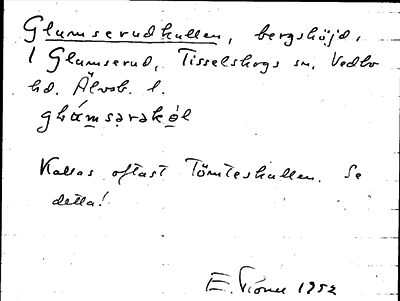 Glumserudkullen, bergshöjd,
i Glumserud, Tisselskogs sn, Vedbo
hd. Älvsb. l.
Kallas oftast Tömteskullen. Se
detta!
E. 1952